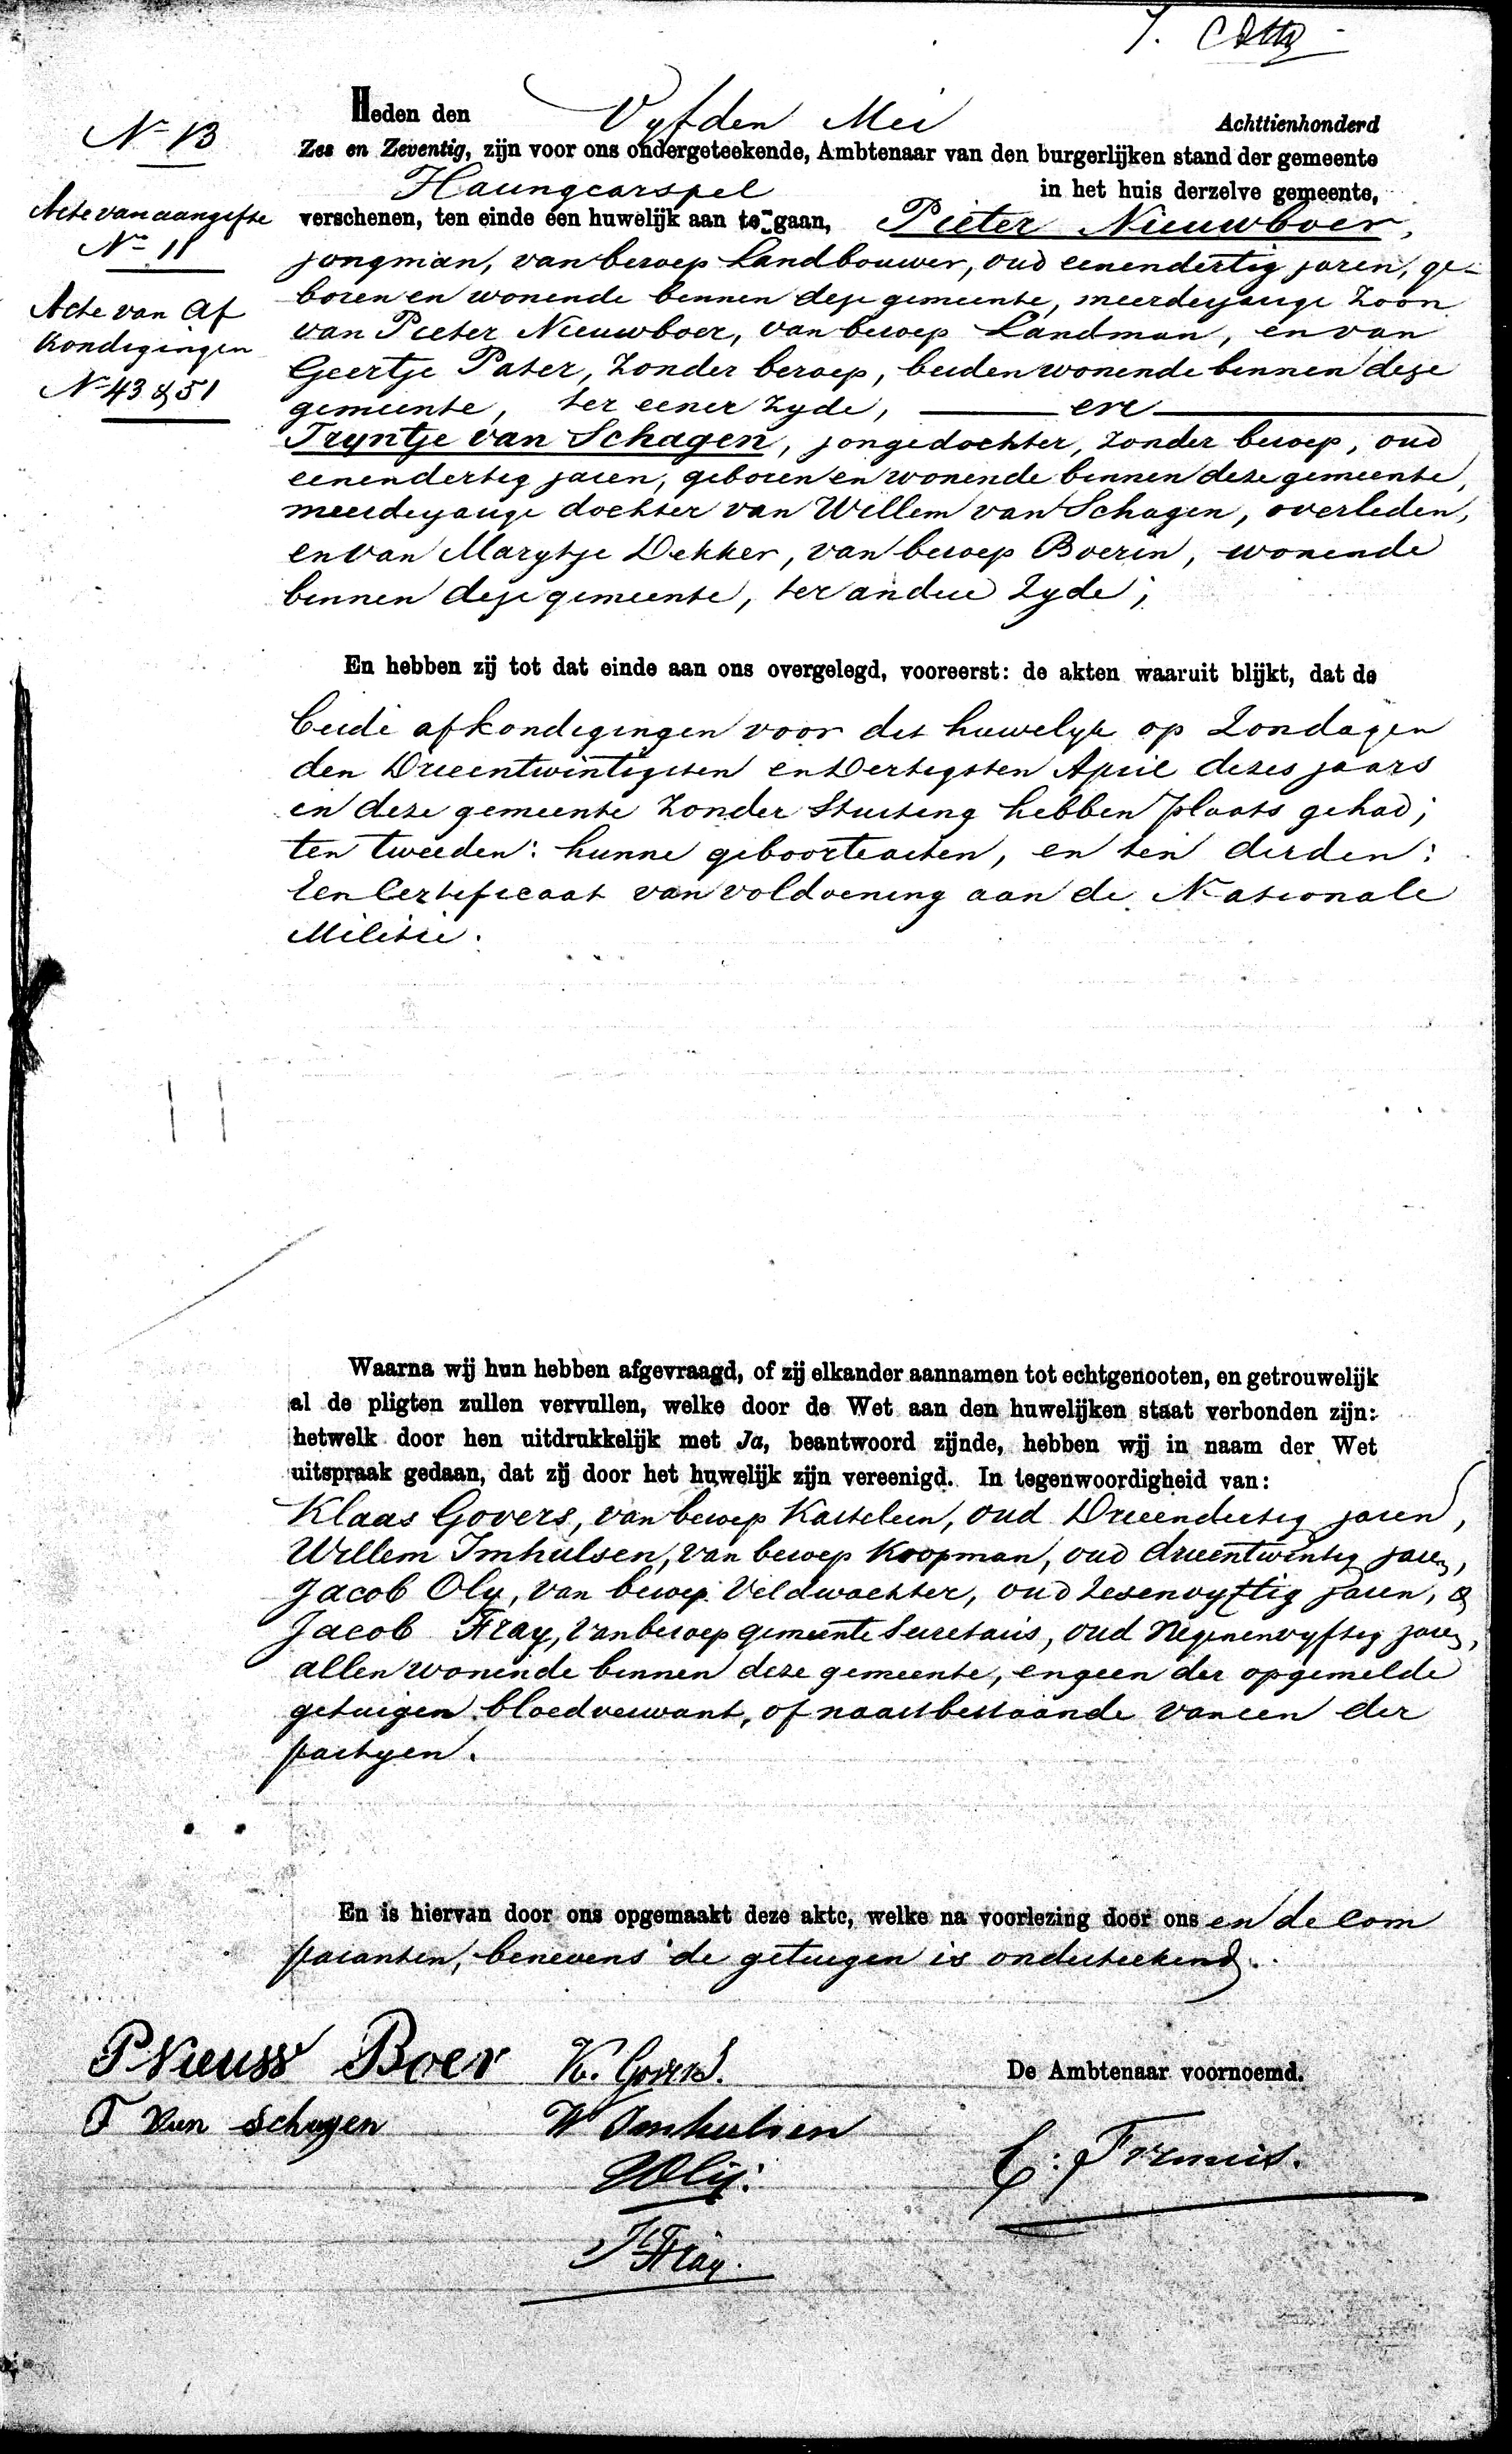 7.
Heden den Vyfden Mei Achttienhonderd
No 13
Zes en Zeventig, zijn voor ons ondergeteekende, Ambtenaar van den burgerlijken stand der gemeente
Haringcarspel in het huis derzelve gemeente,
Acte van aangifte
No 11
verschenen, ten einde een huwelijk aan te gaan, Pieter Nieuwboer,
jongman, van beroep Landbouwer, oud eenendertig jaren, ge-
boren en wonende binnen deze gemeente, meerderjarige Zoon
Acte van Af
kondigingen
No 43 & 51
van Pieter Nieuwboer, van beroep Landman, en van
Geertje Pater, Zonder beroep, beiden wonende binnen deze
gemeente, ter eener Zyde, en
Tryntje van Schagen, jongedochter, Zonder beroep, oud
eenendertig jaren, geboren en wonende binnen deze gemeente,
meerderjarige dochter van Willem van Schagen, overleden,
en van Marytje Dekker, van beroep Boerin, wonende
binnen deze gemeente, ter andere Zyde;
En hebben zij tot dat einde aan ons overgelegd, vooreerst: de akten waaruit blijkt, dat de
beide afkondigingen voor dit huwelyk op Zondagen
den Drieentwintigsten en Dertigsten April dezes jaars
in deze gemeente Zonder Stuiting hebben plaats gehad;
ten tweeden: hunne geboorteacten, en ten derden:
Een Certificaat van voldoening aan de Nationale
Militie.
Waarna wij hun hebben afgevraagd, of zij elkander aannamen tot echtgenooten, en getrouwelijk
al de pligten zullen vervullen, welke door de Wet aan den huwelijken staat verbonden zijn:
hetwelk door hen uitdrukkelijk met Ja, beantwoord zijnde, hebben wij in naam der Wet
uitspraak gedaan, dat zij door het huwelijk zijn vereenigd. In tegenwoordigheid van:
Klaas Govers, van beroep Kastelein, oud Drieendertig jaren,
Willem Imhulsen, van beroep Koopman, oud drieentwintig jaren,
Jacob Oly, van beroep Veldwachter, oud Zesenvyftig jaren, &
Jacob Fray, van beroep gemeente Secretaris, oud Negenenvyftig jaren,
allen wonende binnen deze gemeente, en geen der opgemelde
getuigen bloedverwant, of naastbestaande van een der
partyen.
En is hiervan door ons opgemaakt deze akte, welke na voorlezing door ons en de com
paranten, benevens de getuigen is onderteekend.
P Nieuw Boer K. Govers. De Ambtenaar voornoemd.
T Van Schagen W Imhulsen
JOlij.
J Fray.